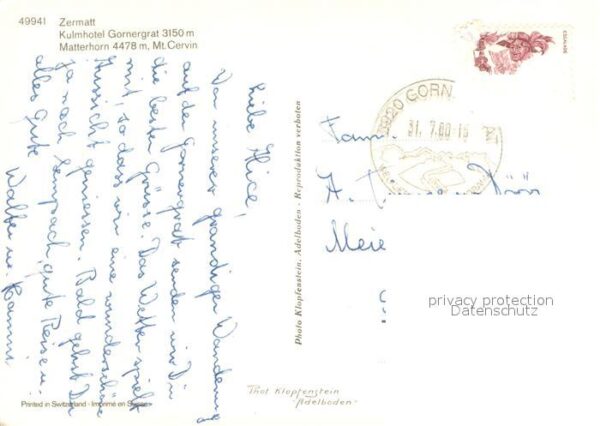 49941 Zermatt
Kulmhotel Gornergrat 3150 m
Matterhorn 4478 m, Mt. Cervin
Liebe Alice,
Von unserer grandiosen Wanderung
auf den Gornergrat senden wir Dir
die besten Grüsse. Das Wetter spielt
mit, so dass wir eine wunderschöne
Aussicht geniessen. Bald gehst Du
ja nach Sempach, gute Reise u.
alles Gute
Walter u. Hanni
Photo Klopfenstein, Adelboden - Reproduktion verboten
3920 GORN
31. 7.80-15
Fam.
A.
Meie
privacy protection
Datenschutz
Phot Klopfenstein
Adelboden
Printed in Switzerland - Imprimé en Suisse